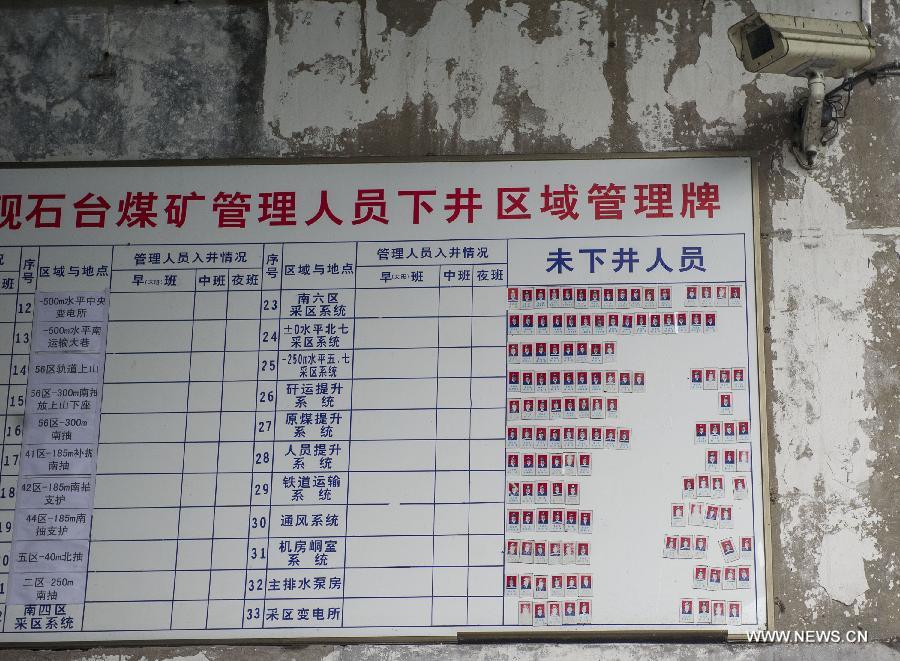 观石台煤矿管理人员下井区域管理牌
况 序号 区域与地点 管理人员入井情况 序号 区域与地点 管理人员入井情况 未下井人员
班 早(大班)班 中班 夜班 早(大班)班 中班 夜班
12 -500m水平中央变电所 23 南六区采区系统
13 -500m水平南运输大巷 24 ±0水平北七采区系统
14 56区轨道上山 25 -250m水平五.七采区系统
15 56区-300m南抽放上山下座 26 矸运提升系统
16 56区-300m南抽 27 原煤提升系统
17 41区-185m补掘南抽 28 人员提升系统
18 42区-185m南抽支护 29 铁道运输系统
19 44区-185m南抽支护 30 通风系统
20 五区-40m北抽 31 机房峒室系统
1 二区-250m南抽 32 主排水泵房
2 南四区采区系统 33 采区变电所
WWW.NEWS.CN